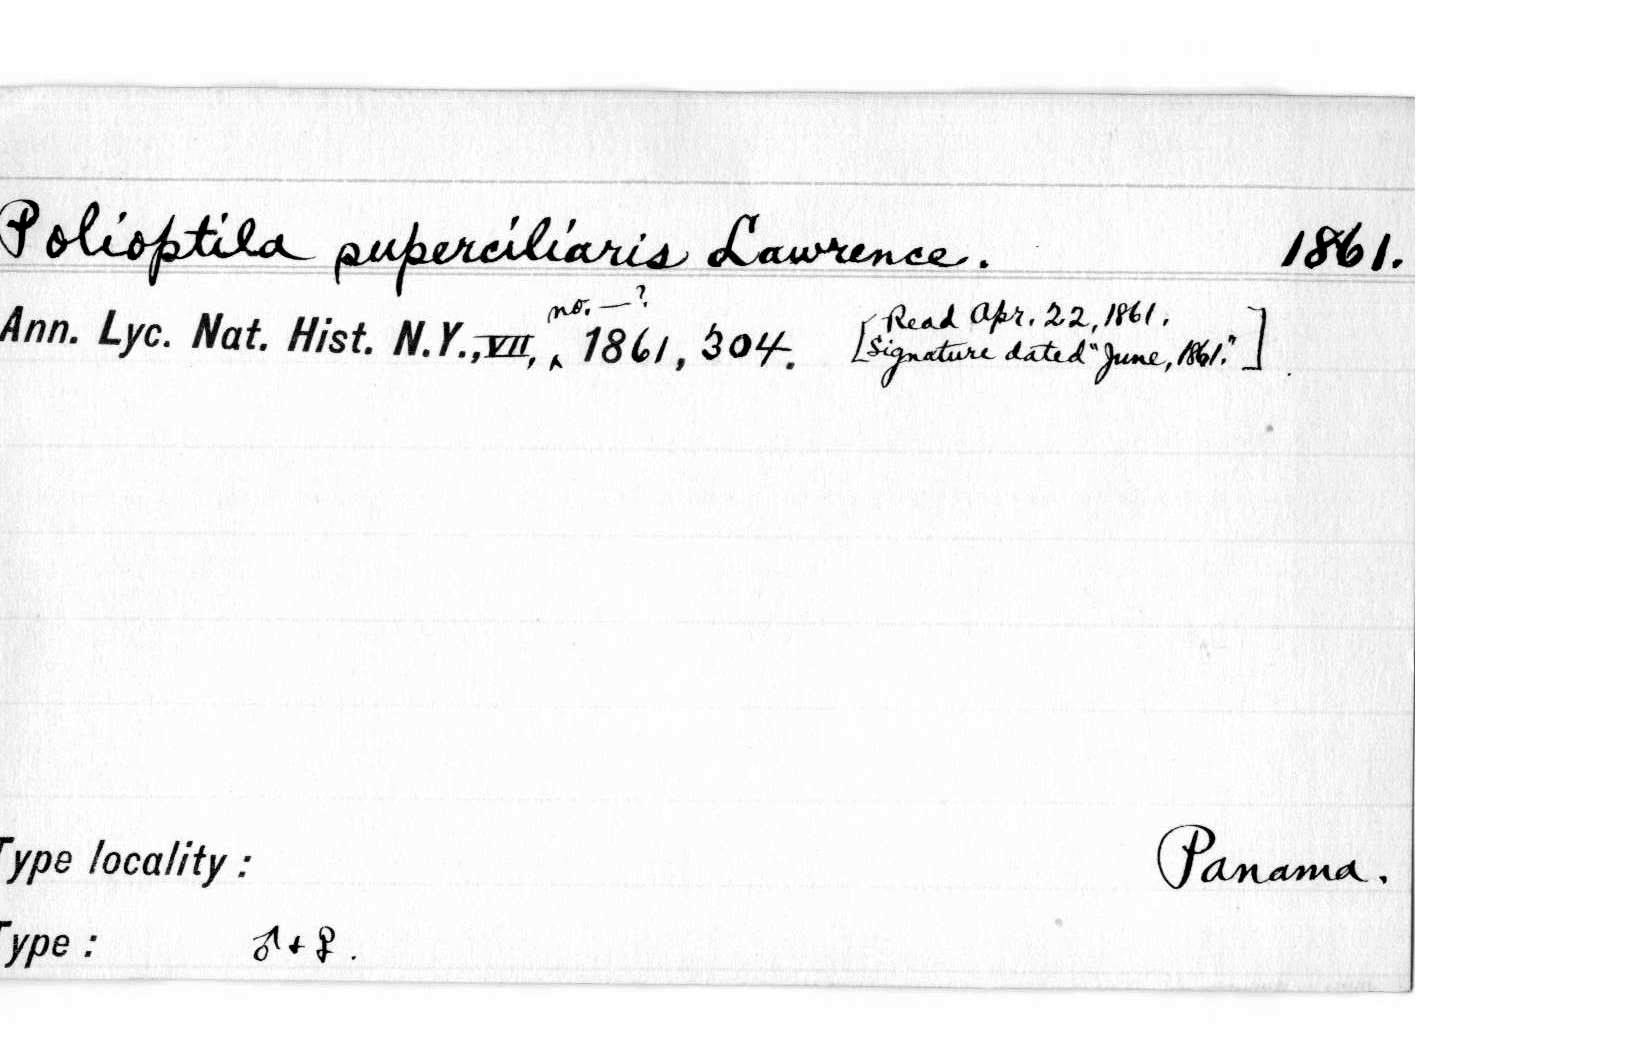 Polioptila superciliaris Lawrence. 1861.
no. —?
Ann. Lyc. Nat. Hist. N.Y., VII, ‸ 1861, 304. [Read Apr. 22, 1861.
Signature dated "June, 1861."]
Type locality: Panama.
Type: ♂ + ♀.